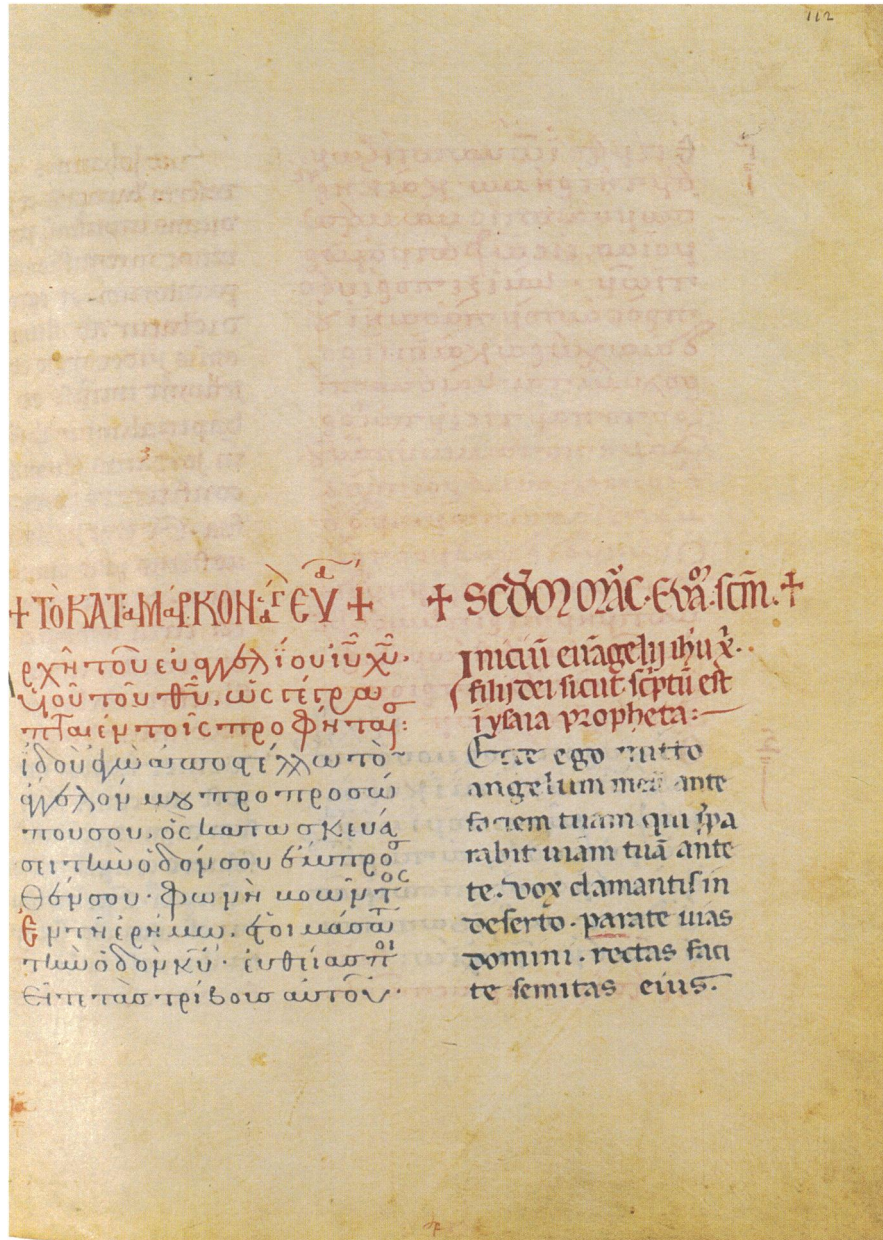 112
+ ΤὸΚΑΤαΜαΡΚΟΝ ἅγ ΕΥ +
ρχὴ τοῦ εὐαγγελίου ἰῦ χῦ·
ὑοῦ τοῦ θῦ, ὡς γέγρα
πται ἐν τοῖς προφήταις:
ἰδοὺ ἐγὼ ἀποστέλλω τὸν
ἄγγελον μου προ προσώ
που σου, ὃς κατασκευά
σει τὴν ὁδόν σου ἔμπροσ
θέν σου· φωνὴ βοῶντος
Ἐν τῆ ἐρήμω. ἑτοιμάσατε
τὴν ὁδὸν κῦ· εὐθείας ποι
εῖτε τὰς τρίβους αὐτοῦ·
+ SCDM MARC·EVA·scm̄·+
Iniciū euāgelij ihu x̄·
filij dei sicut scptū est
ī ysaia propheta:
Ecce ego mitto
angelum meū ante
faciem tuam qui ppa
rabit uiam tuā ante
te. vox clamantis in
deserto. parate uias
domini. rectas faci
te semitas eius.